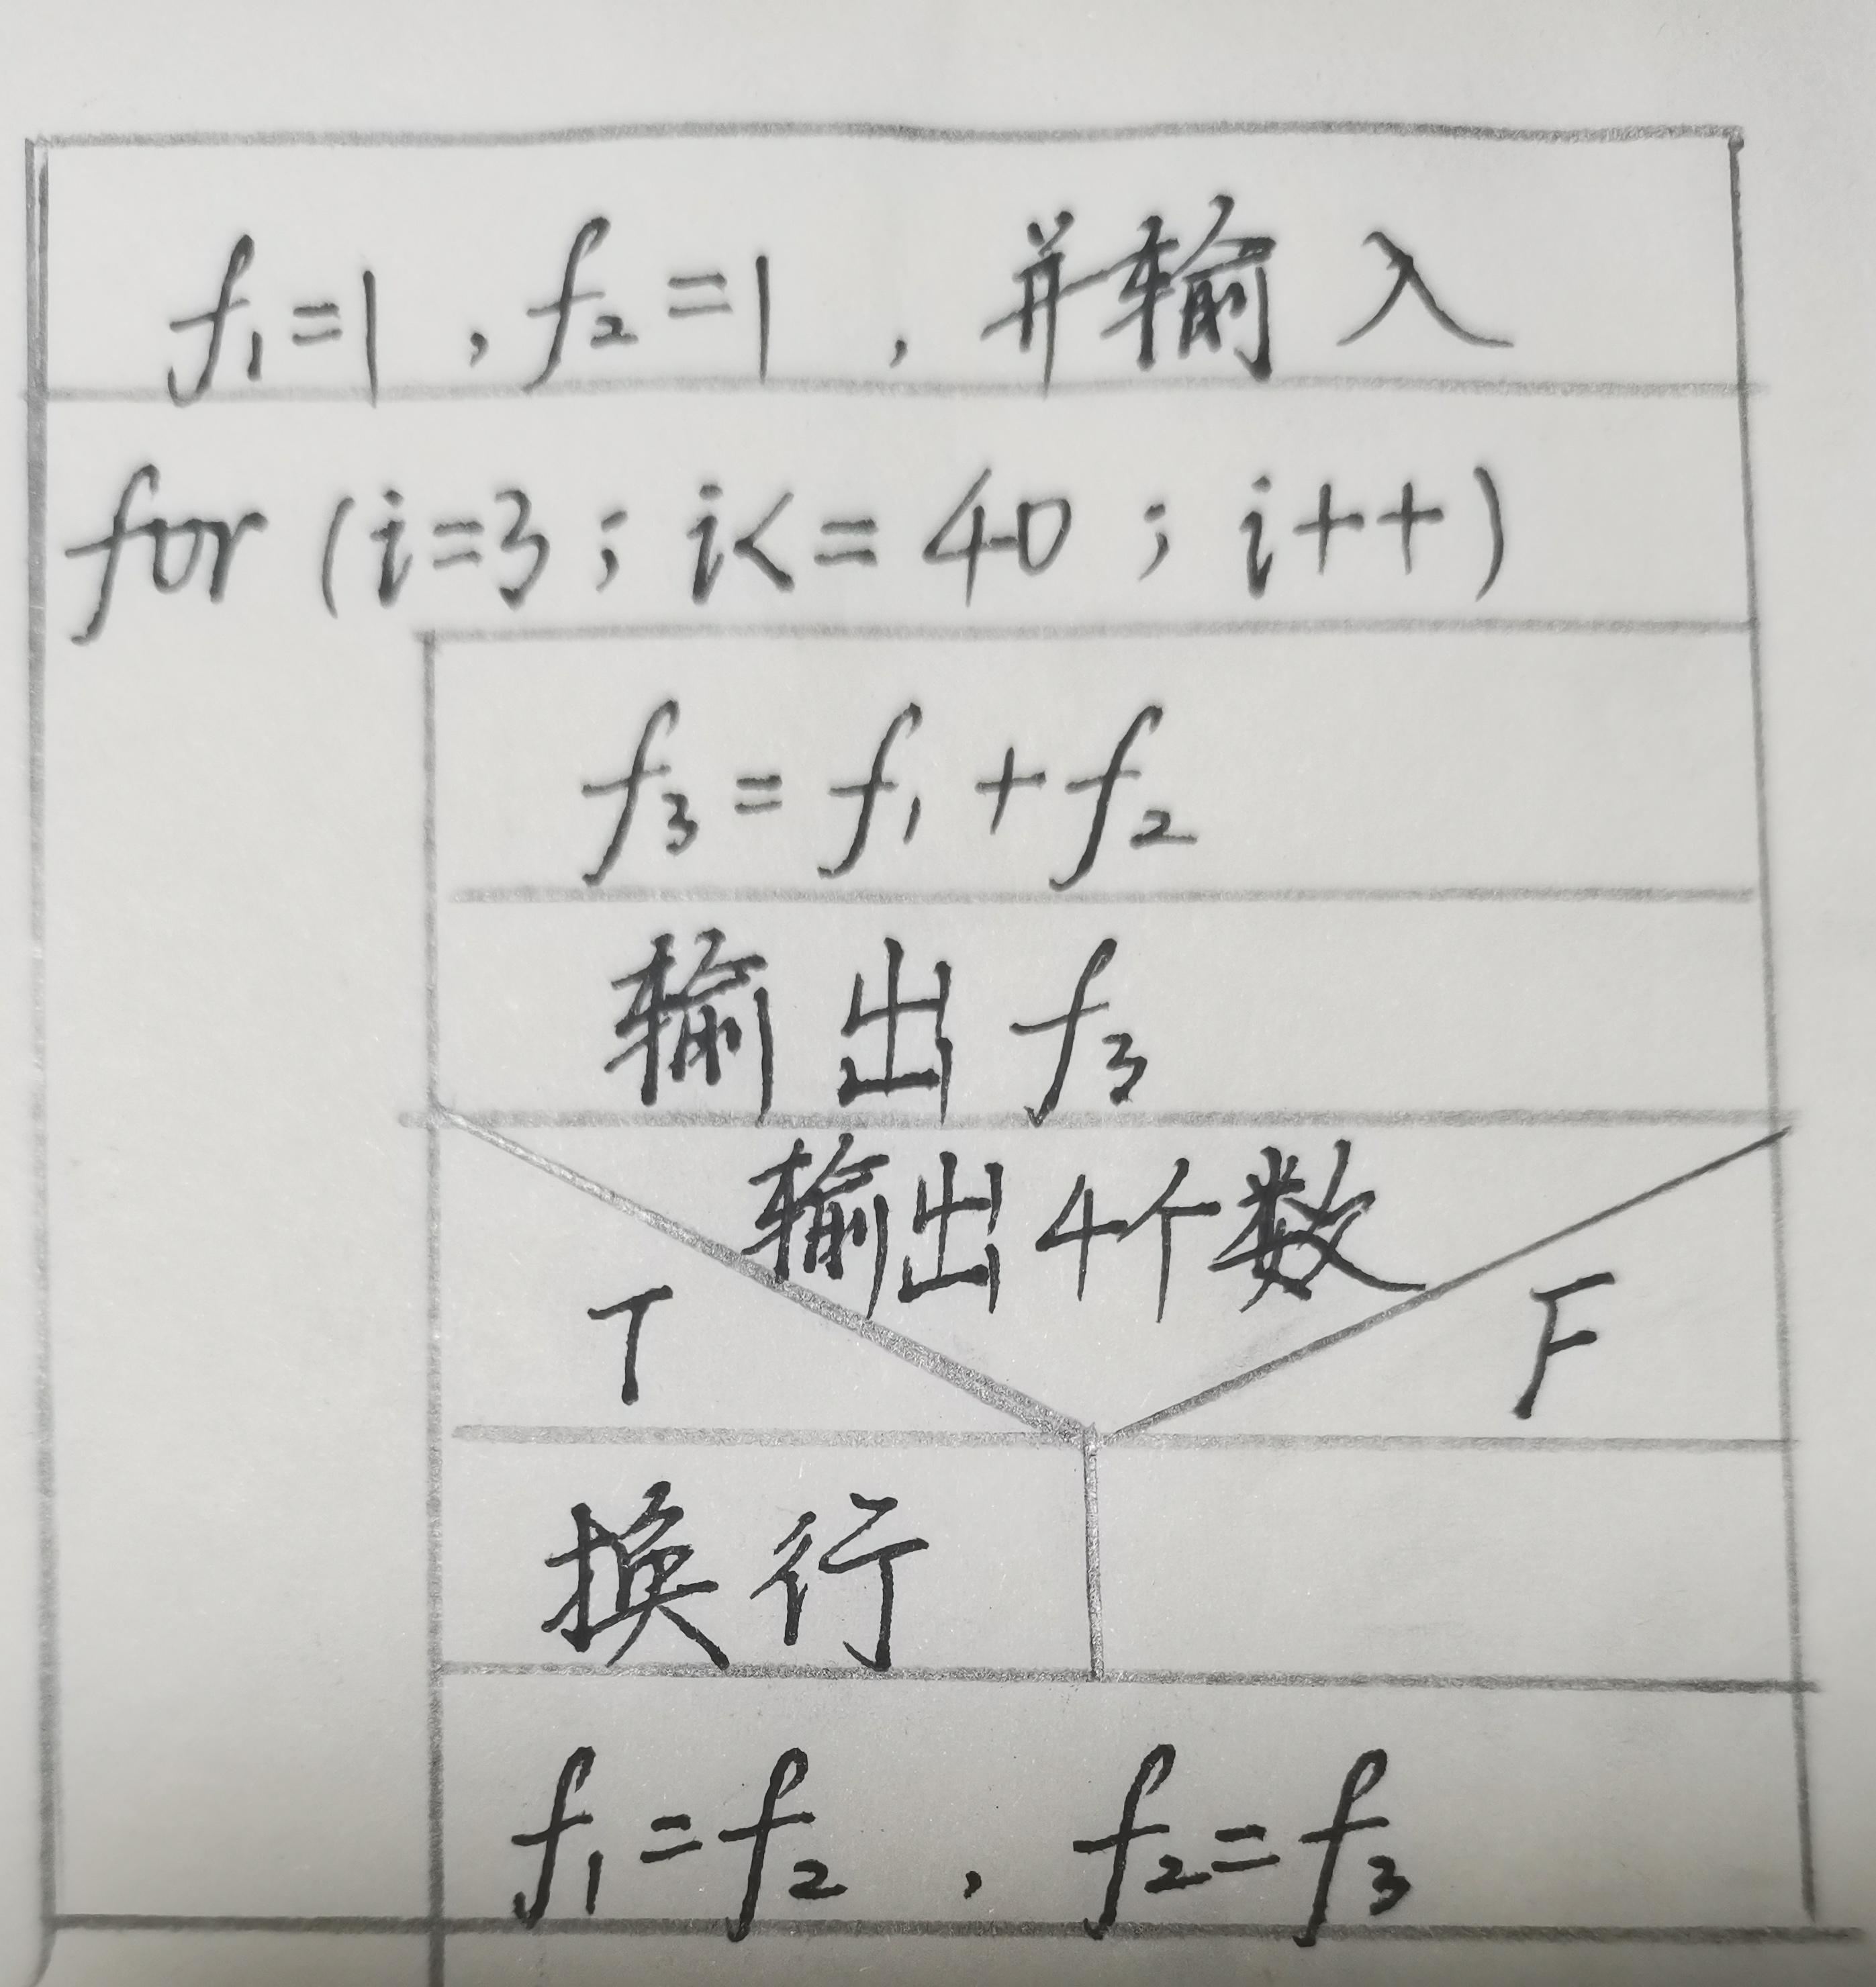 f₁=1,f₂=1,并输入
for(i=3;i<=40;i++)
f₃=f₁+f₂
输出f₃
输出4个数
T F
换行
f₁=f₂,f₂=f₃